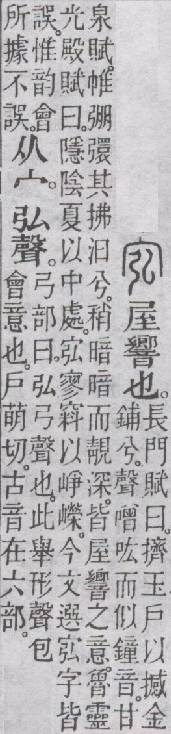 宖屋響也。長門賦曰。擠玉戶以撼金
鋪兮。聲噌吰而似鐘音。甘
泉賦。帷弸彋其拂汨兮。稍暗暗而靚深。皆屋響之意。魯靈
光殿賦曰。隱陰夏以中處。宖寥窲以崢嶸。今文選宖字皆
誤。惟韵會
所據不誤。
从宀。弘聲。弓部曰。弘弓聲也。此舉形聲包
會意也。戶萌切。古音在六部。